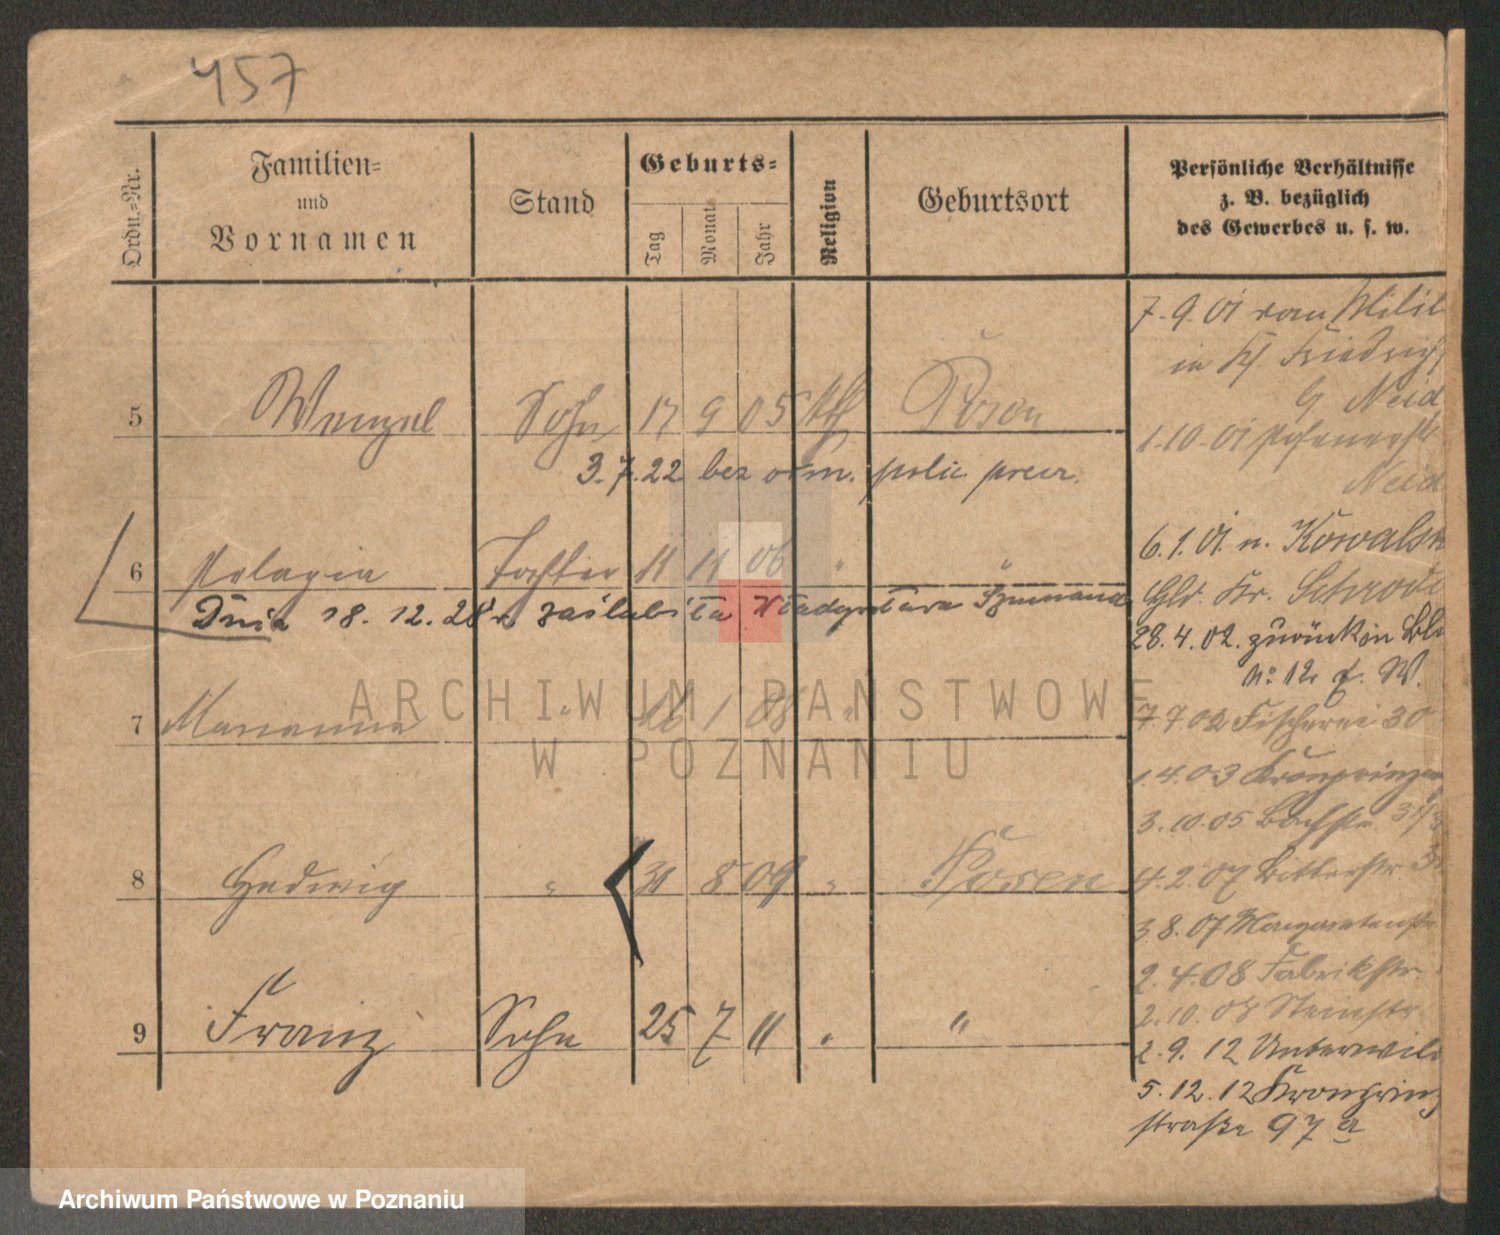 457
Ordn.-Nr.
Familien-
und
Vornamen
Stand
Geburts-
Tag
Monat
Jahr
Religion
Geburtsort
Persönliche Verhältnisse
z. B. bezüglich
des Gewerbes u. s. w.
7.9.01 vom Milit
in Kl. Friedrich
G Neid
5 Wenzel Sohn 17 9 05 kth Posen
1.10.01
Neid
3.7.22. bez orm. polic.
6.1.01. n. Kowalsk
6 Pelagia Tochter 11 11 06 " "
Gld. Kr. Schrod
Dnia 18.12.28 r. zaślubiła Władysława Szymana
28.4.02. zurück in
No 12 W.
7 Marianna " 16 1 08 "
7.9.02 Fischerei 30
1.4.03 Kronprinzen
3.10.05 Bachstr.
8 Hedwig " 31 8 09 " Posen
4.2.07 Bitterstr
3.8.07 Margaretenstr
2.4.08 Fabrikstr
2.10.08 Steinstr
9 Franz Sohn 25 7 11 " "
2.9.12 Unterwild
5.12.12 Kronprinz
straße 97 a
ARCHIWUM PAŃSTWOWE
W POZNANIU
Archiwum Państwowe w Poznaniu